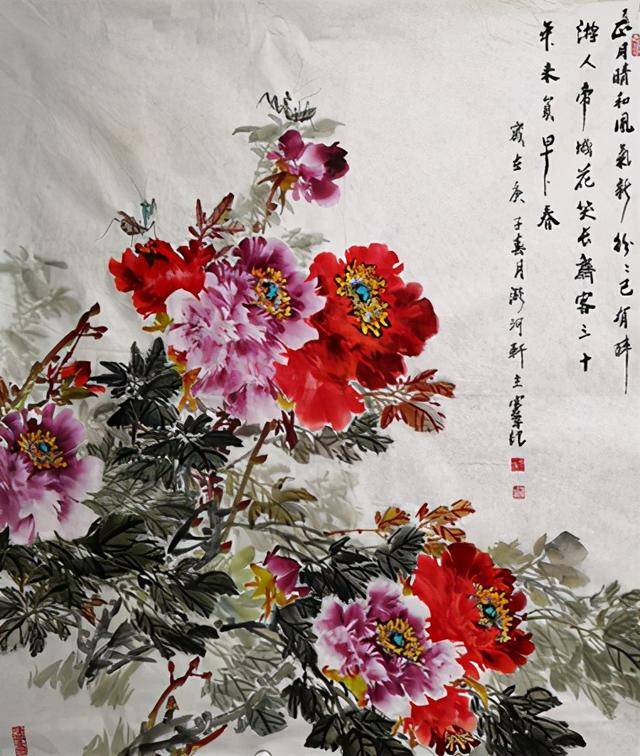 正月晴和風氣新紛〻已有醉
游人帝城花笑長齋客三十
年来負早春
歲在庚子春月河軒主